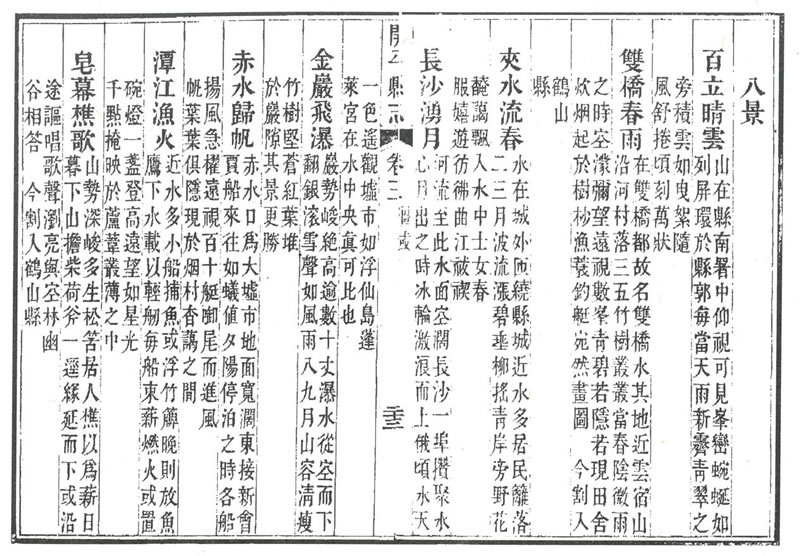 八景
百立晴雲
山在縣南署中仰視可見峯巒蜿蜒如
列屏環於縣郭每當天雨新霽青翠之
旁積雲如曳絮隨
風舒捲頃刻萬狀
雙橋春雨
在雙橋都故名雙橋水其地近雲宿山
沿河村落三五竹樹叢叢當春陰微雨
之時空濛彌望遠視數峯青碧若隱若現田舍
炊烟起於樹杪漁蓑釣艇宛然畫圖 今割入
鶴山
縣
夾水流春
水在城外匝繞縣城近水多居民籬落
二三月波流漲碧垂柳搖青岸旁野花
醃藹飄入水中士女春
服嬉遊彷彿曲江祓禊
長沙湧月
河流至此水面空濶長沙一埠攢聚水
心月出之時冰輪激浪而上俄頃水天
開平縣志 卷三 二十三
一色遙觀墟市如浮仙島蓬
萊宮在水中央真可比也
金巖飛瀑
巖勢峻絕高逾數十丈瀑水從空而下
翻銀滾雪聲如風雨八九月山容清瘦
竹樹堅蒼紅葉堆
於巖隙其景更勝
赤水歸帆
赤水口為大墟市地面寬濶東接新會
賈船來往如蟻值夕陽停泊之時各船
揚風急櫂遠視百十艇啣尾而進風
帆葉葉俱隱現於烟村杳藹之間
潭江漁火
近水多小船捕魚或浮竹簰晚則放魚
鷹下水載以輕舠每船束薪燃火或置
碗燈一盞登高遠望如星光
千點掩映於蘆葦叢薄之中
皂幕樵歌
山勢深峻多生松筈居人樵以為薪日
暮下山擔柴荷斧一逕緣延而下或沿
途謳唱歌聲瀏亮與空林幽
谷相答 今割入鶴山縣